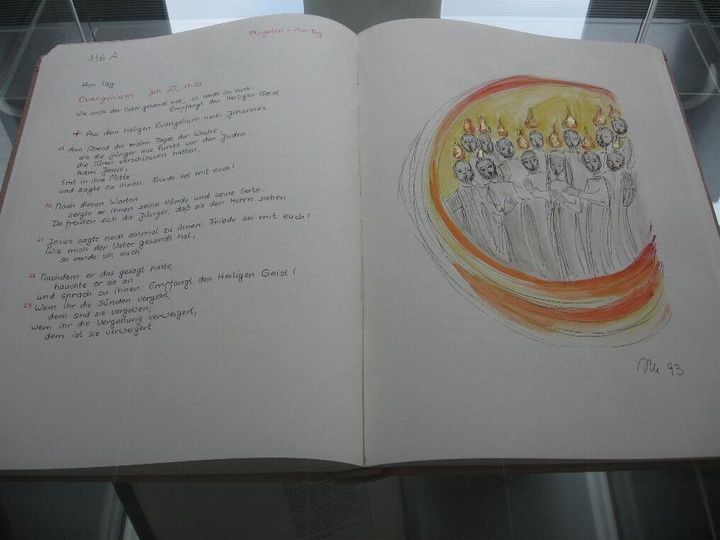 116 A
Pfingsten – Am Tag
Am Tag
Evangelium Joh 20, 19-23
Wie mich der Vater gesandt hat, so sende ich euch:
Empfangt den Heiligen Geist
+ Aus dem heiligen Evangelium nach Johannes
19 Am Abend des ersten Tages der Woche,
als die Jünger aus Furcht vor den Juden
die Türen verschlossen hatten,
kam Jesus,
trat in ihre Mitte
und sagte zu ihnen: Friede sei mit euch!
20 Nach diesen Worten
zeigte er ihnen seine Hände und seine Seite.
Da freuten sich die Jünger, daß sie den Herrn sahen.
21 Jesus sagte noch einmal zu ihnen: Friede sei mit euch!
Wie mich der Vater gesandt hat,
so sende ich euch.
22 Nachdem er das gesagt hatte,
hauchte er sie an
und sprach zu ihnen: Empfangt den Heiligen Geist!
23 Wem ihr die Sünden vergebt,
dem sind sie vergeben;
wem ihr die Vergebung verweigert,
dem ist sie verweigert.
93